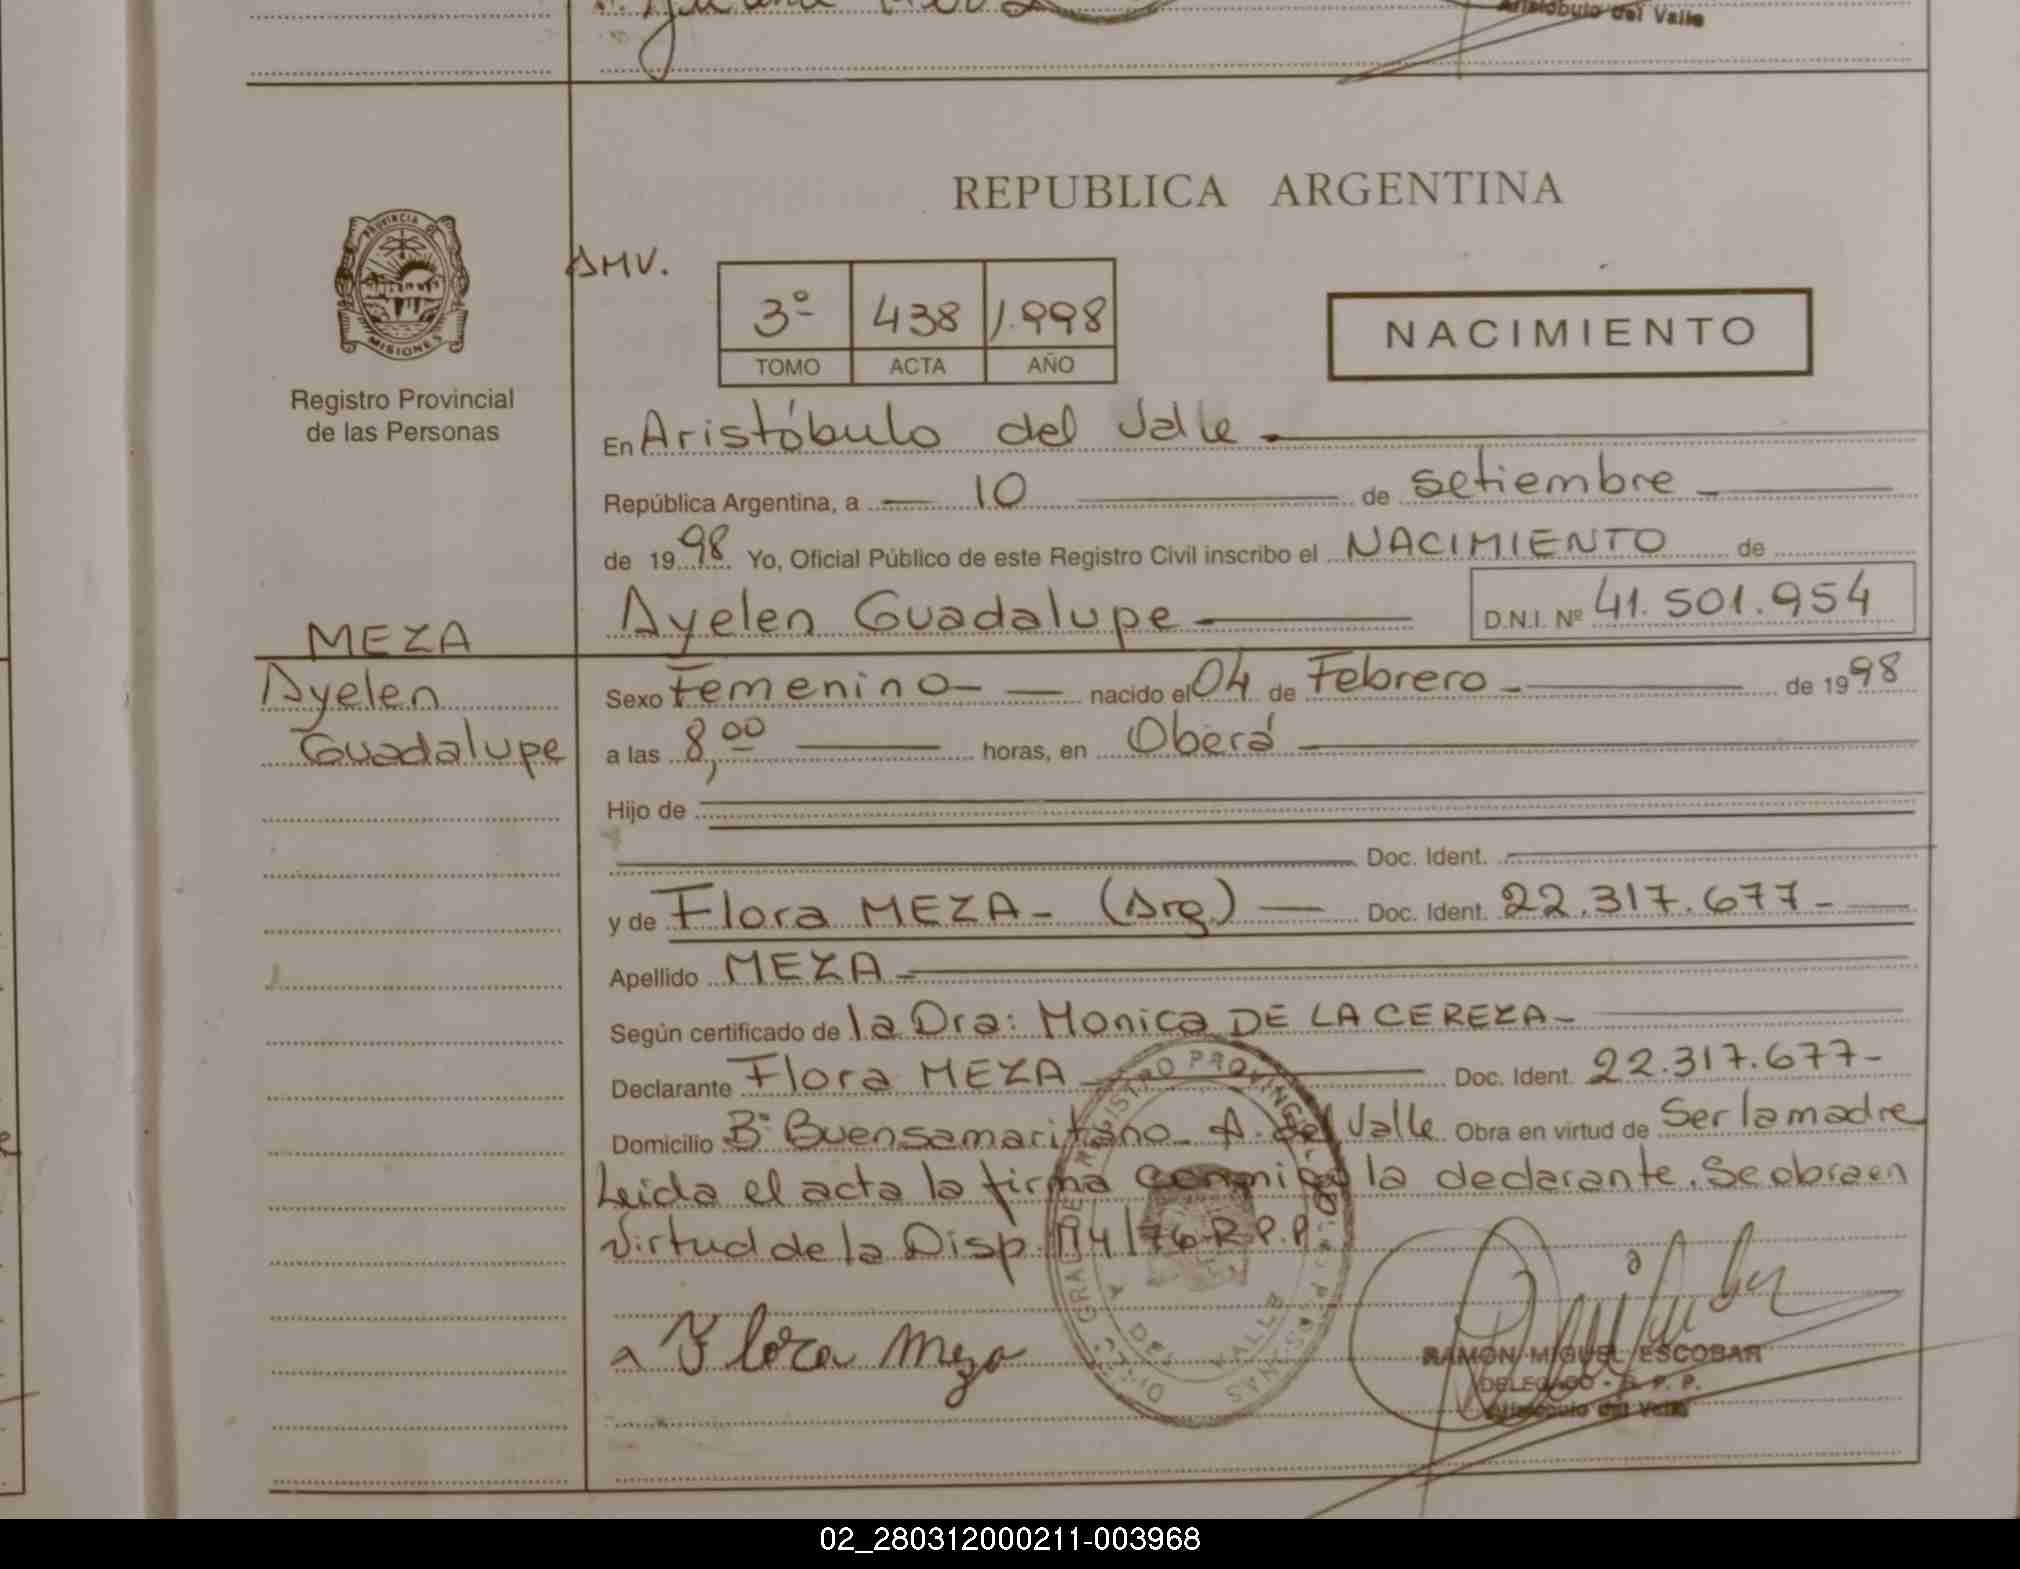 Aristóbulo del Valle
REPUBLICA ARGENTINA
PROVINCIA DE
MISIONES
Registro Provincial
de las Personas
AMV.
3º 438 1.998
TOMO ACTA AÑO
NACIMIENTO
En Aristóbulo del Valle
República Argentina, a 10 de setiembre
de 1998 Yo, Oficial Público de este Registro Civil inscribo el NACIMIENTO de
Ayelen Guadalupe D.N.I. Nº 41.501.954
MEZA
Ayelen
Guadalupe
Sexo Femenino nacido el 04 de Febrero de 1998
a las 8,00 horas, en Oberá
Hijo de
Doc. Ident.
y de Flora MEZA - (Arg.) Doc. Ident. 22.317.677-
Apellido MEZA
Según certificado de la Dra: Monica DE LA CEREZA-
Declarante Flora MEZA Doc. Ident. 22.317.677-
Domicilio Bº Buensamaritano - A. del Valle Obra en virtud de Ser la madre
Leida el acta la firma conmigo la declarante. Se obra en
virtud de la Disp. 114/76-R.P.P.
Flora Meza
RAMON MIGUEL ESCOBAR
DELEGADO - R. P. P.
Aristóbulo del Valle
02_280312000211-003968